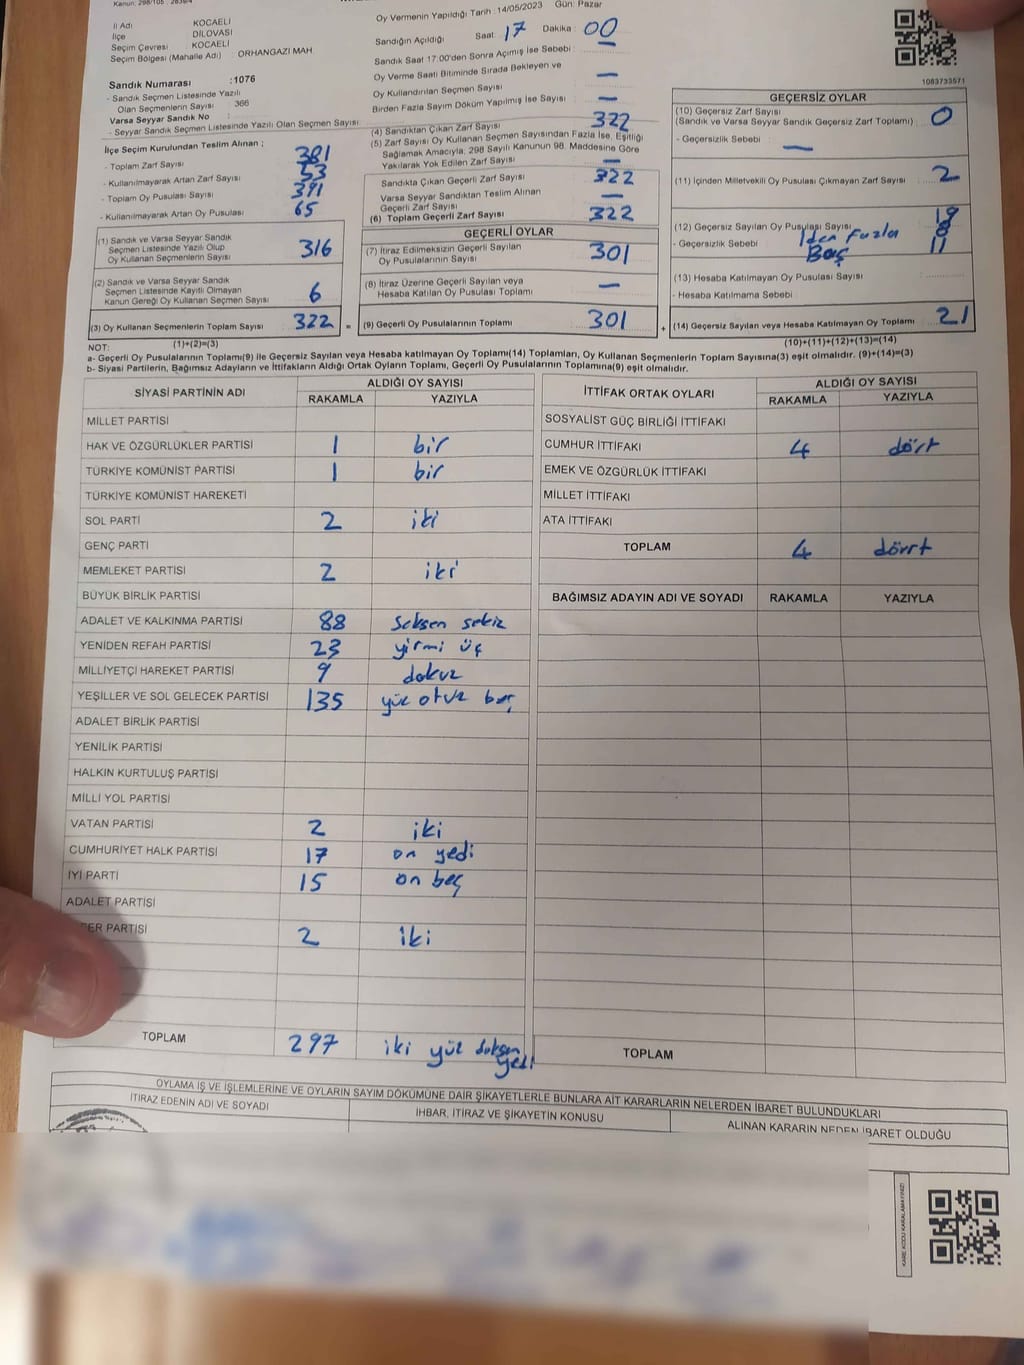 Kanun: 298/105
İl Adı KOCAELİ
İlçe DİLOVASI
Seçim Çevresi KOCAELİ
Seçim Bölgesi (Mahalle Adı) : ORHANGAZI MAH.
Sandık Numarası :1076
- Sandık Seçmen Listesinde Yazılı
Olan Seçmenlerin Sayısı : 366
Varsa Seyyar Sandık No :
- Seyyar Sandık Seçmen Listesinde Yazılı Olan Seçmen Sayısı :
İlçe Seçim Kurulundan Teslim Alınan ;
- Toplam Zarf Sayısı 381
- Kullanılmayarak Artan Zarf Sayısı 53
- Toplam Oy Pusulası Sayısı 391
- Kullanılmayarak Artan Oy Pusulası 65
(1) Sandık ve Varsa Seyyar Sandık
Seçmen Listesinde Yazılı Olup
Oy Kullanan Seçmenlerin Sayısı 316
(2) Sandık ve Varsa Seyyar Sandık
Seçmen Listesinde Kayıtlı Olmayan
Kanun Gereği Oy Kullanan Seçmen Sayısı 6
(3) Oy Kullanan Seçmenlerin Toplam Sayısı 322 =
Oy Vermenin Yapıldığı Tarih : 14/05/2023 Gün: Pazar
Sandığın Açıldığı Saat : 17 Dakika : 00
Sandık Saat 17.00'den Sonra Açımış İse Sebebi :
Oy Verme Saati Bitiminde Sırada Bekleyen ve
Oy Kullandırılan Seçmen Sayısı —
Birden Fazla Sayım Döküm Yapılmış İse Sayısı : —
(4) Sandıktan Çıkan Zarf Sayısı 322
(5) Zarf Sayısı Oy Kullanan Seçmen Sayısından Fazla İse, Eşitliği
Sağlamak Amacıyla, 298 Sayılı Kanunun 98. Maddesine Göre
Yakılarak Yok Edilen Zarf Sayısı —
Sandıkta Çıkan Geçerli Zarf Sayısı 322
Varsa Seyyar Sandıktan Teslim Alınan
Geçerli Zarf Sayısı —
(6) Toplam Geçerli Zarf Sayısı 322
GEÇERLİ OYLAR
(7) İtiraz Edilmeksizin Geçerli Sayılan
Oy Pusulalarının Sayısı 301
(8) İtiraz Üzerine Geçerli Sayılan veya
Hesaba Katılan Oy Pusulası Toplamı —
(9) Geçerli Oy Pusulalarının Toplamı 301 +
1083733571
GEÇERSİZ OYLAR
(10) Geçersiz Zarf Sayısı
(Sandık ve Varsa Seyyar Sandık Geçersiz Zarf Toplamı) 0
- Geçersizlik Sebebi : —
(11) İçinden Milletvekili Oy Pusulası Çıkmayan Zarf Sayısı 2
(12) Geçersiz Sayılan Oy Pusulası Sayısı 19
- Geçersizlik Sebebi 1den Fazla 8
Boş 11
(13) Hesaba Katılmayan Oy Pusulası Sayısı
- Hesaba Katılmama Sebebi
(14) Geçersiz Sayılan veya Hesaba Katılmayan Oy Toplamı 21
NOT: (1)+(2)=(3) (10)+(11)+(12)+(13)=(14)
a- Geçerli Oy Pusulalarının Toplamı(9) ile Geçersiz Sayılan veya Hesaba katılmayan Oy Toplamı(14) Toplamları, Oy Kullanan Seçmenlerin Toplam Sayısına(3) eşit olmalıdır. (9)+(14)=(3)
b- Siyasi Partilerin, Bağımsız Adayların ve İttifakların Aldığı Ortak Oyların Toplamı, Geçerli Oy Pusulalarının Toplamına(9) eşit olmalıdır.
SİYASİ PARTİNİN ADI ALDIĞI OY SAYISI
RAKAMLA YAZIYLA
MİLLET PARTİSİ
HAK VE ÖZGÜRLÜKLER PARTİSİ 1 bir
TÜRKİYE KOMÜNİST PARTİSİ 1 bir
TÜRKİYE KOMÜNİST HAREKETİ
SOL PARTİ 2 iki
GENÇ PARTİ
MEMLEKET PARTİSİ 2 iki
BÜYÜK BİRLİK PARTİSİ
ADALET VE KALKINMA PARTİSİ 88 seksen sekiz
YENİDEN REFAH PARTİSİ 23 yirmi üç
MİLLİYETÇİ HAREKET PARTİSİ 9 dokuz
YEŞİLLER VE SOL GELECEK PARTİSİ 135 yüz otuz beş
ADALET BİRLİK PARTİSİ
YENİLİK PARTİSİ
HALKIN KURTULUŞ PARTİSİ
MİLLİ YOL PARTİSİ
VATAN PARTİSİ 2 iki
CUMHURİYET HALK PARTİSİ 17 on yedi
İYİ PARTİ 15 on beş
ADALET PARTİSİ
PARTİSİ 2 iki
TOPLAM 297 iki yüz doksan
yedi
İTTİFAK ORTAK OYLARI ALDIĞI OY SAYISI
RAKAMLA YAZIYLA
SOSYALİST GÜÇ BİRLİĞİ İTTİFAKI
CUMHUR İTTİFAKI 4 dört
EMEK VE ÖZGÜRLÜK İTTİFAKI
MİLLET İTTİFAKI
ATA İTTİFAKI
TOPLAM 4 dörrt
BAĞIMSIZ ADAYIN ADI VE SOYADI RAKAMLA YAZIYLA
TOPLAM
OYLAMA İŞ VE İŞLEMLERİNE VE OYLARIN SAYIM DÖKÜMÜNE DAİR ŞİKAYETLERLE BUNLARA AİT KARARLARIN NELERDEN İBARET BULUNDUKLARI
İTİRAZ EDENİN ADI VE SOYADI İHBAR, İTİRAZ VE ŞİKAYETİN KONUSU ALINAN KARARIN NEDEN İBARET OLDUĞU
KARE KODU KARALAMAYINIZ!